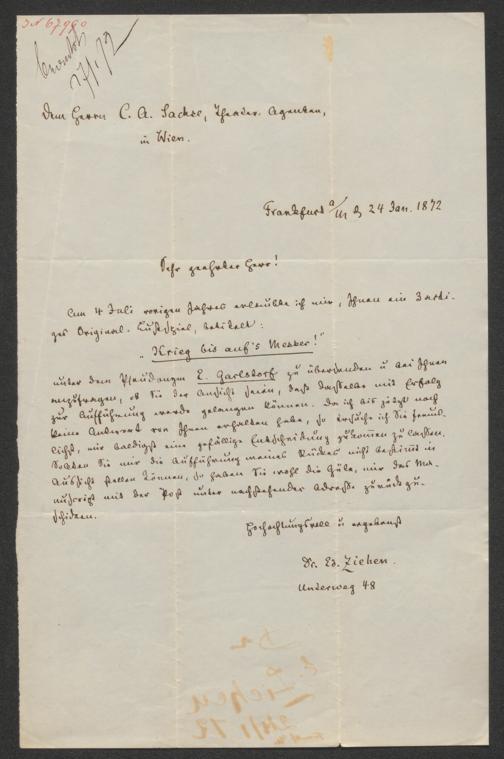 JN 67990
27/1.72
Dem Herrn C. A. Sachse, Theater-Agenten,
in Wien.
Frankfurt a/M d 24 Jan. 1872
Sehr geehrter Herr!
Am 4 Juli vorigen Jahres erlaubte ich mir, Ihnen ein 3 akti-
ges Original-Lustspiel, betitelt:
"Krieg bis auf's Messer!"
unter dem Pseudonym E. Garlsdorf zu übersenden u bei Ihnen
anzufragen, ob Sie der Ansicht seien, daß dasselbe mit Erfolg
zur Aufführung werde gelangen können. Da ich bis jetzt noch
keine Antwort von Ihnen erhalten habe, so ersuche ich Sie freund-
lichst, mir baldigst eine gefällige Entscheidung zukommen zu lassen.
Sollten Sie mir die Aufführung meines Stückes nicht bestimmt in
Aussicht stellen können, so haben Sie wohl die Güte, mir das Ma-
nuscript mit der Post unter nachstehender Adresse zurückzu-
schicken.
Hochachtungsvoll u ergebenst
Dr. Ed. Ziehen.
Unterweg 48